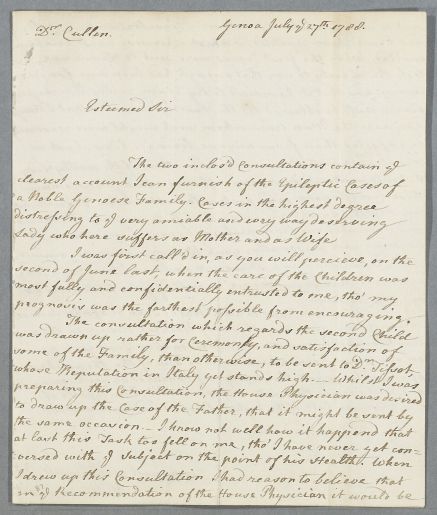 Dr. Cullen.
Genoa July ye 27th. 1788.
Esteemed Sir
The two inclos'd Consultations contain ye
clearest account I can furnish of the Epileptic Cases of
a Noble Genoese Family. Cases in the highest degree
distressing to ye very amiable and every way deserving
Lady who here suffers as Mother and as Wife
I was first call'd in, as you will percieve, on the
second of June last, when the care of the Children was
most fully and confidentially entrusted to me, tho' my
prognosis was the farthest possible from encouraging.
The consultation which regards the second Child
was drawn up rather for Ceremony, and satisfaction of
some of the Family, than otherwise, to be sent to Dr. Tissot,
whose Reputation in Italy yet stands high — Whilst I was
preparing this Consultation, the House Physician was desired
to draw up the Case of the Father, that it might be sent by
the same occasion. — I know not well how it happend that
at last this Task too fell on me, tho' I have never yet con-
versed with ye Subject on the point of his Health. When
I drew up this Consultation I had reason to believe that
on ye Recommendation of the House Physician it would be